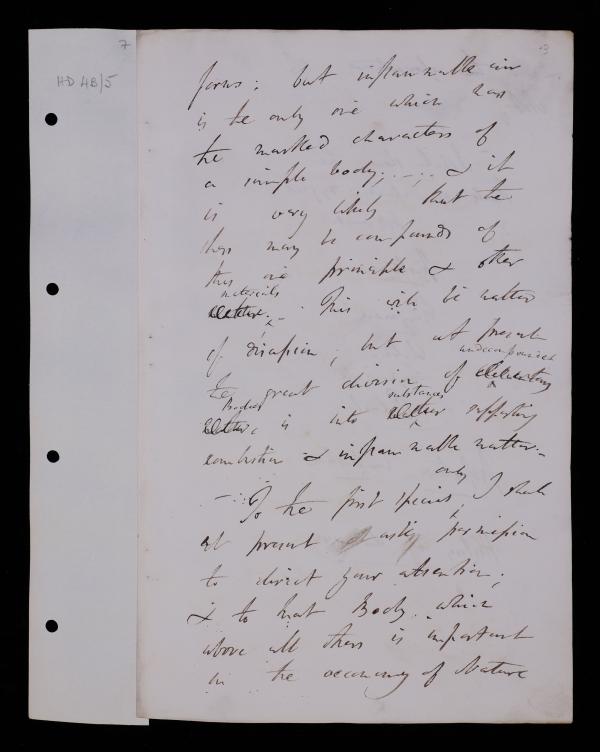 7
3
HD 4B/5
forms; but inflammable air
is the only one which has
the marked characters of
a simple body; — & it
is very likely that the
others may be compounds of
this one principle & other
materials
This will be matter
of discussion; but at present
undecompounded
the great division of elementary
Bodies substances
is into supporting
combustion & inflammable matter.—
only
—: To the first species, I shall
at present ask permission
to direct your attention;
& to that Body which
above all others is important
in the oeconomy of Nature